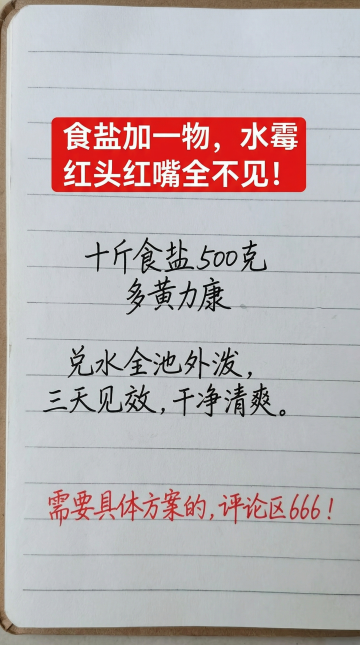 食盐加一物，水霉
红头红嘴全不见！
十斤食盐500克
多黄力康
兑水全池外泼，
三天见效，干净清爽。
需要具体方案的，评论区666！